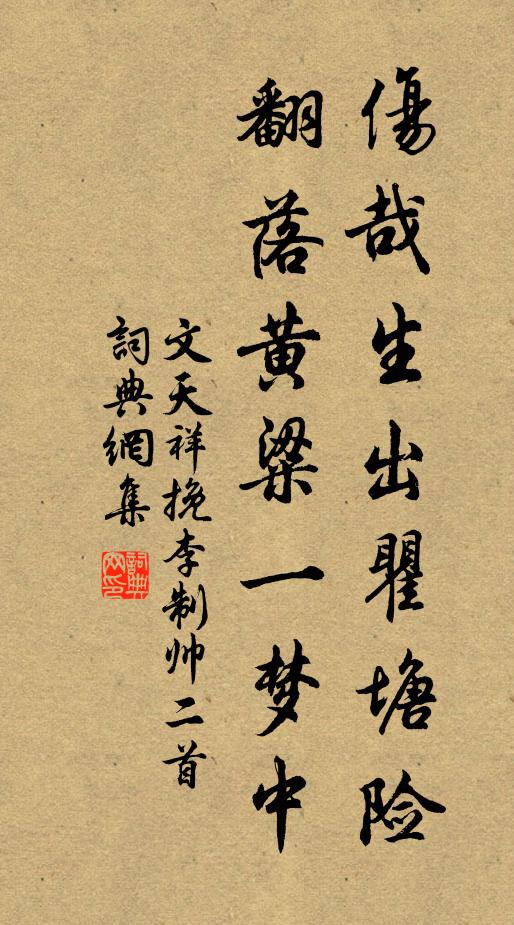 傷哉生出瞿塘险
翻落黄粱一梦中
文天祥挽李制帅二首
詞典網集
詞典网印